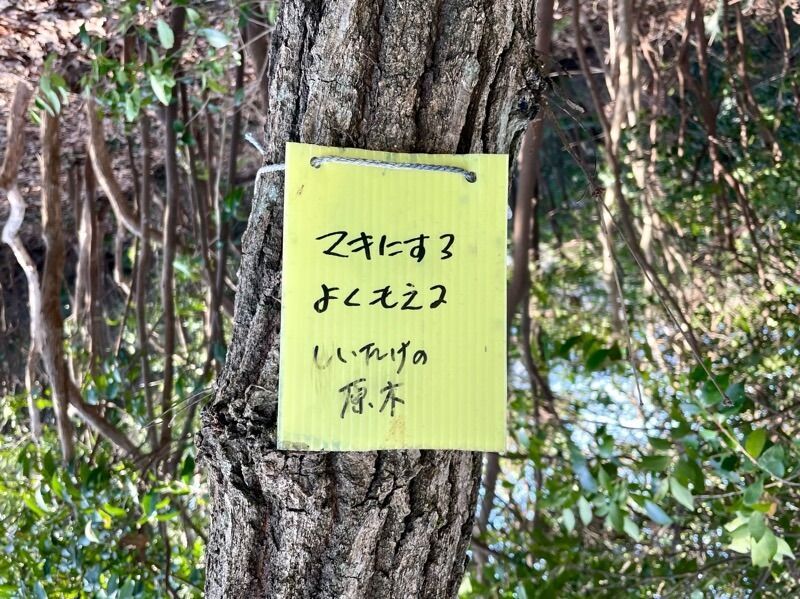 マキにする
よくもえる
しいたけの
原木